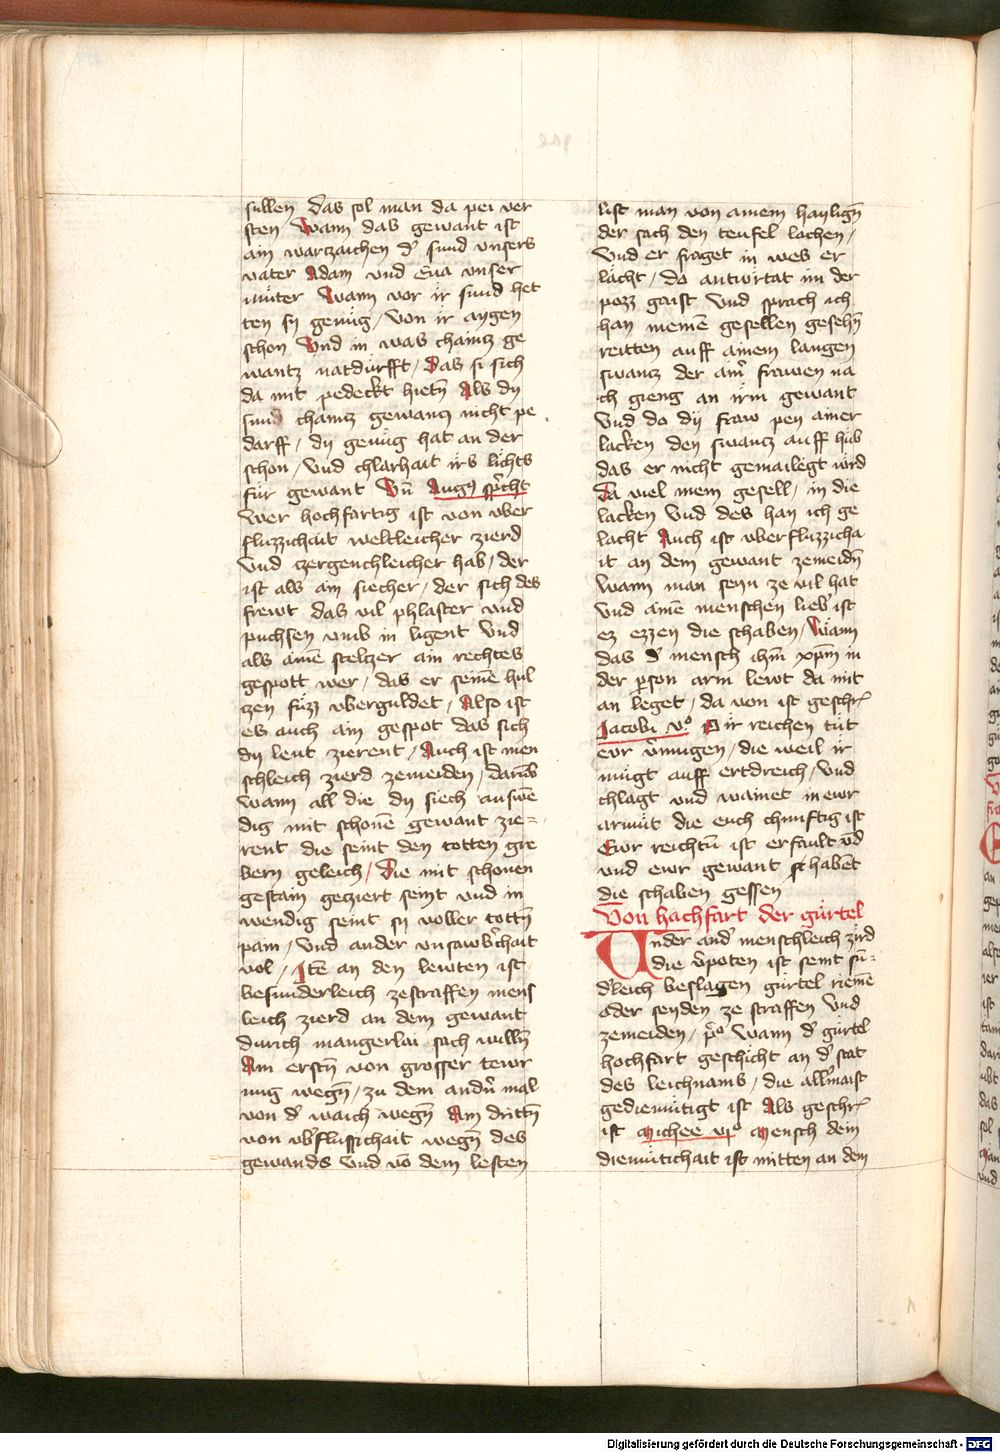 sullen das sol man da pei ver
sten Wann das gewant ist
ain warczaichen d' sund vnsers
vater Adam vnd Eua vnser
müter Wann vor ir sund het
ten sy genüg / von ir aygen
schon Vnd in was chaincz ge
wantz natdürfft / Das si sich
da mit pedeckt hietn̄ Als dy
sund chaincz gewancz nicht pe
darff / dy genüg hat an der
schon / vnd chlarhait irs lichts
für gewant Vn̄ Aug9 spricht
Wer hochfartig ist von vber
fluzzichait weltleicher zierd
Vnd czergenchleicher hab / der
ist als ain siecher / der sich des
frewt das vil phlaster vnd
puchsen vmb in ligent Vnd
als aine stelczer ain rechtes
gespott wer / das er seine hul
tzen füzz vberguldet / Also ist
es auch ain gespot das sich
dy leut zierent / Auch ist men
schleich zierd zemeiden / darūb
Wann all die dy siech auswe
dig mit schone gewant zie=
rent die seint den totten gre
bern geleich / Die mit schonen
gestain geziert seint vnd in
wendig seint sy voller tottn̄
pain / Vnd ander vnsawb'chait
vol / Ite an den lewten ist
besunderleich zestraffen mens
leich zierd an dem gewant
durich mangerlai sach willn̄
Am erstn̄ von grosser tewr
nug wegn̄ / zu dem andn̄ mal
von d' waich wegn̄ Am drittn̄
von vb'flussichait wegn̄ des
gewands Vnd vō dem lesten
list man von ainem haylign̄
der sach den teufel lachen /
Vnd er fraget in wes er
lacht / Da antwirtat im der
pozz gaist Vnd sprach ich
han meine gesellen gesehn̄
reitten auff ainem langen
swancz der ain' frawen na
ch gieng an irm gewant
Vnd do dy fraw pey ainer
lacken den swantz auff hüb
das er nicht gemailigt würd
Da viel mein gesell / in die
lacken Vnd des han ich ge
lacht Auch ist vberfluzzicha
it an dem gewant zemeidn̄
Wann man seyn ze vil hat
Vnd aine menschen lieb' ist
ez ezzen die schaben / Wann
das d' mensch ihm xpm in
der person arm lewt da mit
an leget / da von ist geschr'
Jacobi v° O ir reichen tüt
ewr v'nnugen / die weil ir
mügt auff ertdreich / Vnd
chlagt vnd wainet in ewr
armüt die euch chunftig ist
Ewr reichtū ist erfault vnd
vnd ewr gewant habent
die schaben gessen
Von hachfart der gürtel
Under and' menschleich zird
die v'poten ist seint sun=
d'leich beslagen gürtel rieme
oder seyden ze straffen Vnd
zemeiden / p'° Wann d' gürtel
hochfart geschicht an d' stat
des leichnams / die all'maist
gediemütigt ist Als geschr'
ist Michee vj° Mensch dein
diemütichait ist mitten an dem